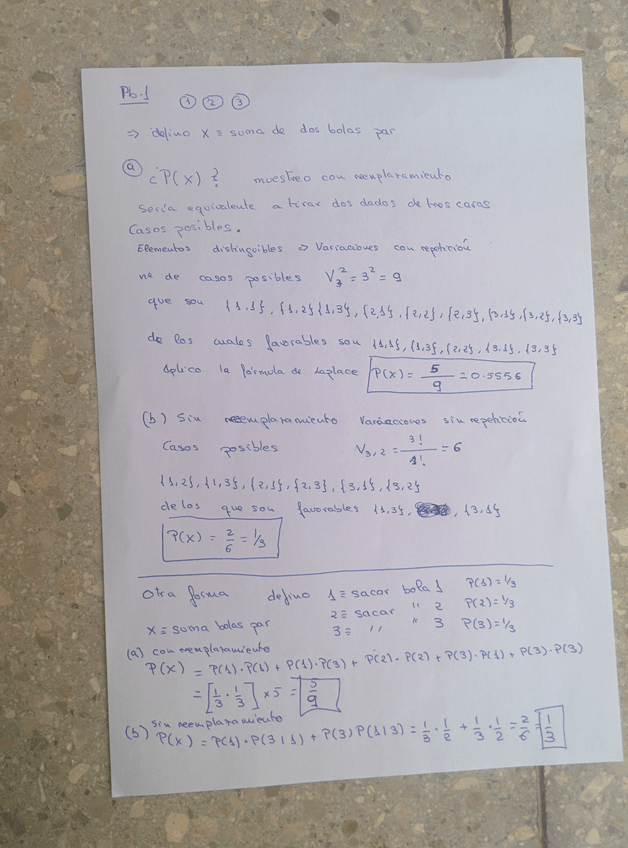 Pb.1
① ② ③
⇒ defino X ≡ suma de dos bolas par
ⓐ ¿P(X)? muestreo con reemplazamiento
Sería equivalente a tirar dos dados de tres caras
Casos posibles.
Elementos distinguibles ⇒ Variaciones con repetición
nº de casos posibles V₃² = 3² = 9
que son {1,1}, {1,2} {1,3}, {2,1}, {2,2}, {2,3}, {3,1}, {3,2}, {3,3}
de los cuales favorables son {1,1}, {1,3}, {2,2}, {3,1}, {3,3}
Aplico la fórmula de Laplace P(X) = 5/9 = 0.5556
(b) Sin reemplazamiento Variaciones sin repetición
Casos posibles V₃,₂ = 3!/1! = 6
{1,2}, {1,3}, {2,1}, {2,3}, {3,1}, {3,2}
de los que son favorables {1,3}, , {3,1}
P(X) = 2/6 = 1/3
Otra forma defino 1 ≡ sacar bola 1 P(1) = 1/3
2 ≡ sacar " 2 P(2) = 1/3
X ≡ suma bolas par 3 ≡ " " 3 P(3) = 1/3
(a) con reemplazamiento
P(X) = P(1)·P(1) + P(1)·P(3) + P(2)·P(2) + P(3)·P(1) + P(3)·P(3)
= [1/3 · 1/3] × 5 = 5/9
(b) sin reemplazamiento
P(X) = P(1)·P(3|1) + P(3)P(1|3) = 1/3 · 1/2 + 1/3 · 1/2 = 2/6 = 1/3